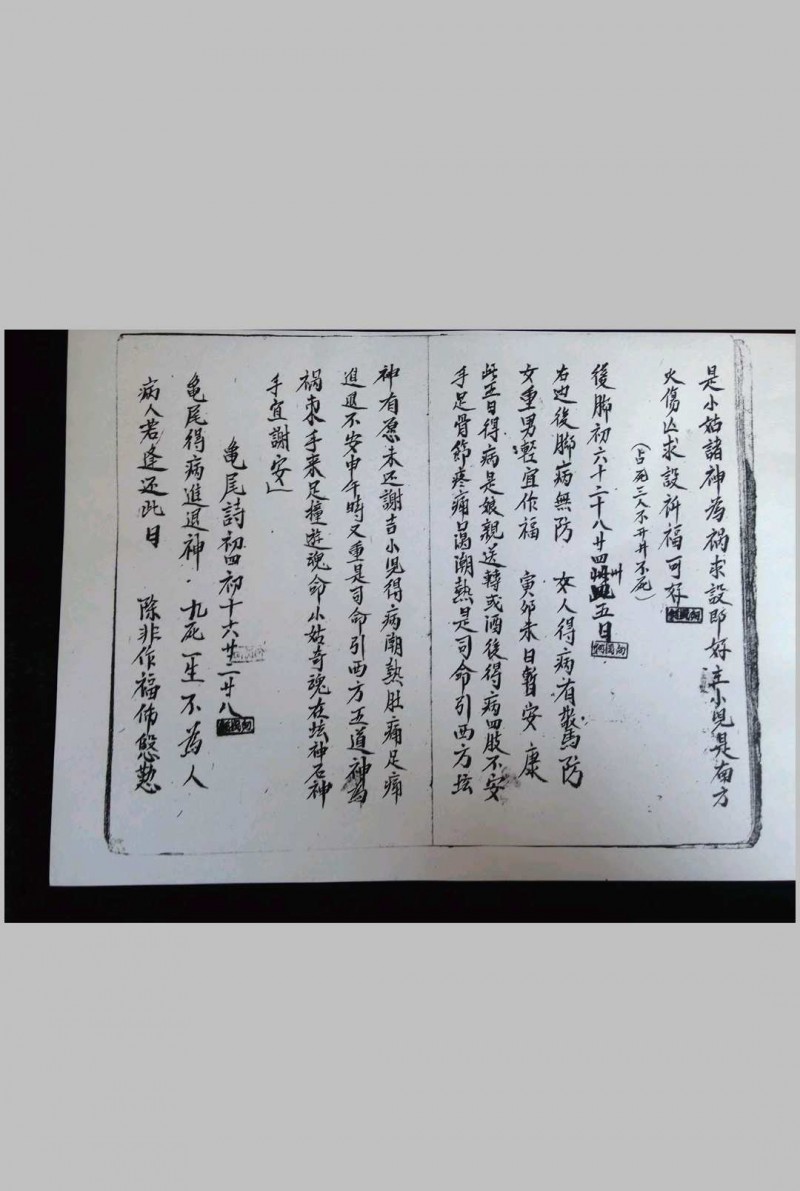 是小姑諸神為禍求設即好 小児是南方
火傷亡求設祈福可好
(占死三人不廾井不死)
後脚初六十二十八廾四 卅 五日
右边後脚病無防 女人得病有驚防
女重男輕宜作福 寅卯未日暫安康
此五日得病是娘親送轉或酒後得病四肢不安
手足骨節疼痛口渴潮熱是司命引西方坛
神有愿未还謝吉小児得病潮熱肚痛足痛
進退不安申午時又重是司命引西方五道神為
禍東手来足撞遊魂命小姑奇魂在坛神石神
手宜謝安」
亀尾詩初四初十六廾二廾八
亀尾得病進退神 九死一生不為人
病人若逢还此日 除非作福佈慇懃